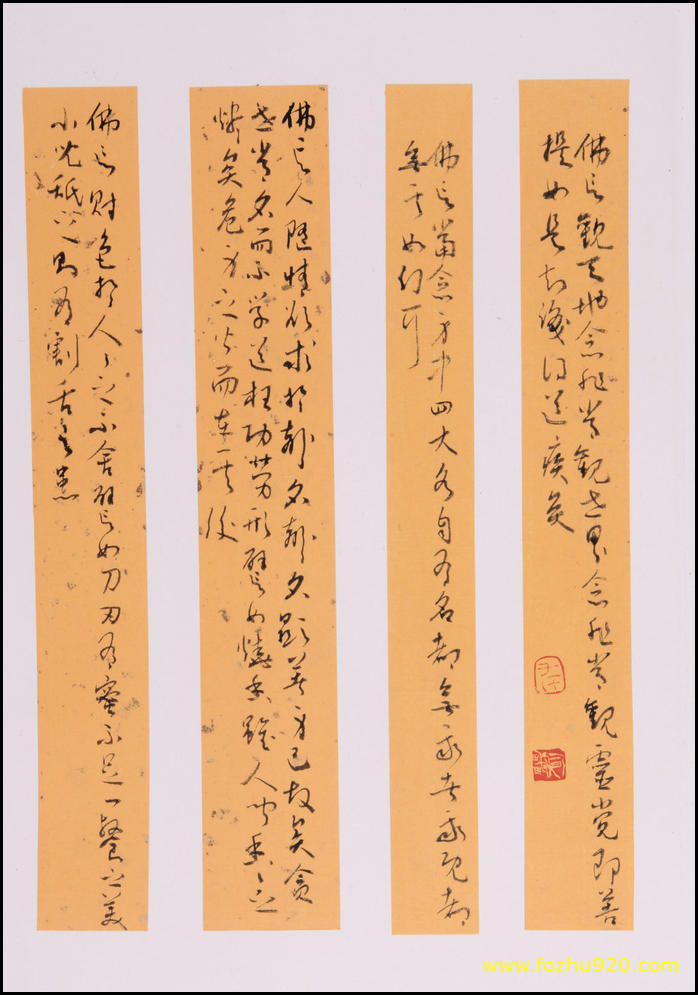 佛言觀天地念非常觀世界念非常觀靈覺即菩
提如是知識得道疾矣
佛言當念身中四大各自有名都無我者我既都
無其如幻耳
佛言人隨情欲求於聲名聲名顯著身已故矣貪
世常名而不學道枉功勞形譬如燒香雖人聞香々之
燼矣危身之火而在其後
佛言財色於人々之不舍譬如刀刃有蜜不足一餐之美
小兒舐之則有割舌之患
www.fozhu920.com